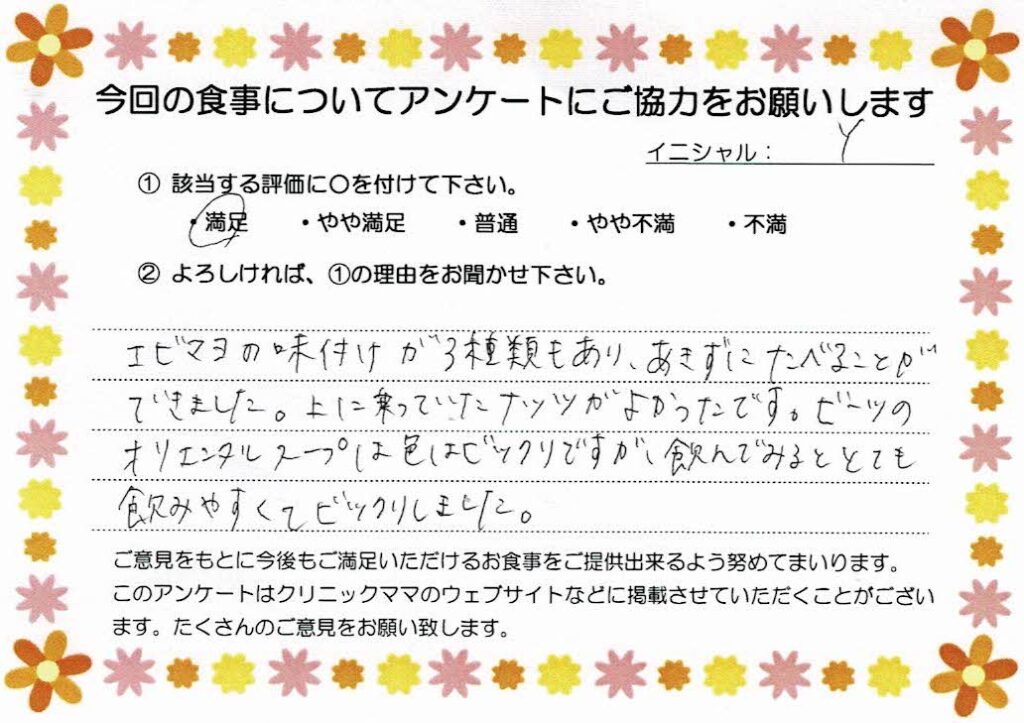 今回の食事についてアンケートにご協力をお願いします
イニシャル： Y
① 該当する評価に〇を付けて下さい。
・満足 ・やや満足 ・普通 ・やや不満 ・不満
② よろしければ、①の理由をお聞かせ下さい。
エビマヨの味付けが3種類もあり、あきずにたべることが
できました。上に乗っていたナッツがよかったです。ビーツの
オリエンタルスープは色はビックリですが、飲んでみるととても
飲みやすくてビックリしました。
ご意見をもとに今後もご満足いただけるお食事をご提供出来るよう努めてまいります。
このアンケートはクリニックママのウェブサイトなどに掲載させていただくことがござい
ます。たくさんのご意見をお願い致します。